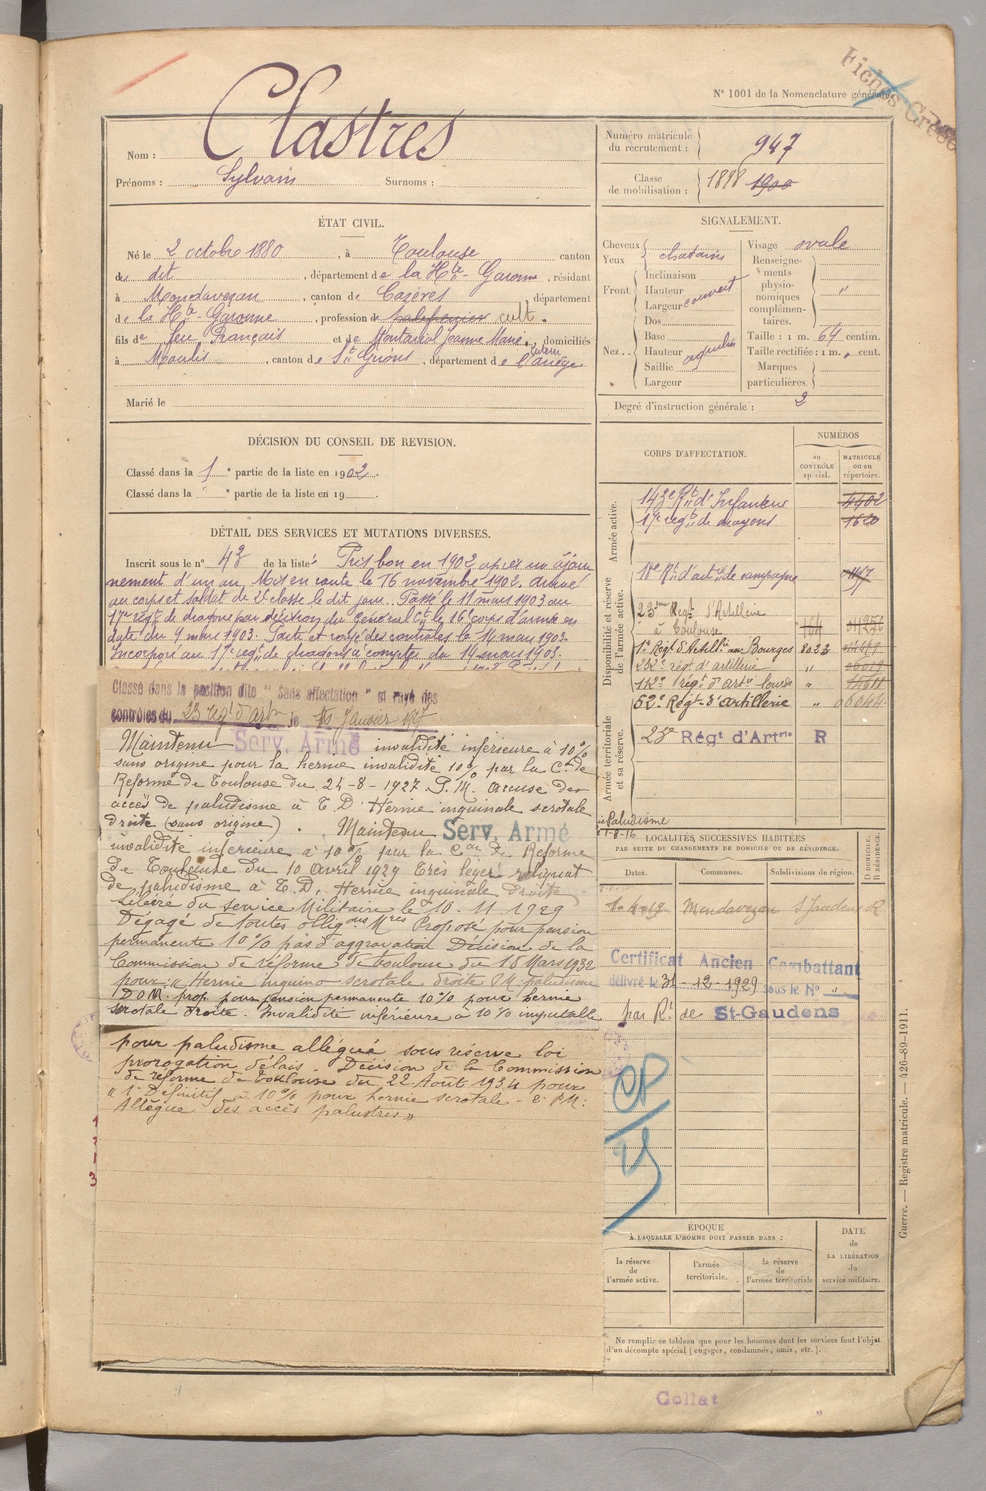 N° 1001 de la Nomenclature générale
Fiches
Nom : Clastres
Prénoms : Sylvain Surnoms :
ÉTAT CIVIL.
Né le 2 octobre 1880, à Toulouse canton
de dit, département de la Hte-Garonne, résidant
à Mondavezan, canton de Cazères département
de la Hte-Garonne, profession de cult.
fils de feu François et de Montariol Jeanne Marie, domiciliés
à Moulis, canton de St Girons, département de l'Ariège
Marié le
DÉCISION DU CONSEIL DE REVISION.
Classé dans la 1e partie de la liste en 1902.
Classé dans la e partie de la liste en 19
DÉTAIL DES SERVICES ET MUTATIONS DIVERSES.
Inscrit sous le n° 43 de la liste Pris bon en 1902 après un ajour
nement d'un an. Mis en route le 16 novembre 1902. arrivé
au corps et soldat de 2e classe le dit jour. Passé le 11 mars 1903 au
17e régt de dragons par décision du Général Ct le 16e corps d'armée en
date du 9 mars 1903. Parti et rayé des contrôles le 14 mars 1903.
Incorporé au 17e régt de dragons à compter du 14 mars 1903.
Classé dans la position dite "Sans affectation" et rayé des
contrôles du 23 régt d'artie le 15 Janvier 1927
Maintenu Serv. Armé invalidité inférieure à 10%
sans origine pour la hernie invalidité 10% par la Con de
Réforme de Toulouse du 24-8-1927 P.M. accuse des
accès de paludisme à T.D. Hernie inguinale scrotale
droite (sans origine). Maintenu Serv. Armé
invalidité inférieure à 10% par la Con de Réforme
de Toulouse du 10 Avril 1929 Très léger reliquat
de paludisme à T.D. Hernie inguinale droite
Libéré du service Militaire le 10.11.1929
Dégagé de toutes obligons Mres Proposé pour pension
permanente 10% pas d'aggravation Décision de la
Commission de réforme de Toulouse du 18 Mars 1932
pour: "Hernie inguino scrotale droite P.M. paludisme
D.O.M. prop. pour pension permanente 10% pour hernie
scrotale droite. Invalidité inférieure à 10% imputable
pour paludisme allégué sous réserve loi
prorogation délais. Décision de la Commission
de réforme de Toulouse du 22 Août 1934 pour
"1° Définitif à 10% pour hernie scrotale - 2° P.M:
Allègue des accès palustres"
Numéro matricule du recrutement : 947
Classe de mobilisation : 1898 1900
SIGNALEMENT.
Cheveux chatains
Yeux
Front. Inclinaison
Hauteur couvert
Largeur
Nez. Dos
Base
Hauteur aquilin
Saillie
Largeur
Visage ovale
Renseignements physionomiques complémentaires. "
Taille : 1 m. 64 centim.
Taille rectifiée : 1 m. cent.
Marques particulières.
Degré d'instruction générale : 2
CORPS D'AFFECTATION.
NUMÉROS
au CONTRÔLE spécial.
MATRICULE ou au répertoire.
Armée active.
143e Rt d'Infanterie 4402
17e régt de dragons 1620
Disponibilité et réserve de l'armée active.
18e Rt d'artie de campagne
23ème Régt d'Artillerie
à Toulouse
1er Régt d'Artillie au Bourges 8023
régt d'artillerie "
112e régt d'arty lourde "
52e Régt d'artillerie "
Armée territoriale et sa réserve.
23e Régt d'Artrie R
Paludisme
1-8-16
LOCALITÉS SUCCESSIVES HABITÉES
PAR SUITE DE CHANGEMENTS DE DOMICILE OU DE RÉSIDENCE.
Dates. Communes. Subdivisions de région. D. DOMICILE. R. RÉSIDENCE.
Mondavezan St Gaudens R
Certificat Ancien Combattant
délivré le 31-12-1929 sous le N° "
par Rt de St-Gaudens
CP
ÉPOQUE
À LAQUELLE L'HOMME DOIT PASSER DANS :
la réserve de l'armée active.
l'armée territoriale.
la réserve de l'armée territoriale
DATE de LA LIBÉRATION du service militaire.
Ne remplir ce tableau que pour les hommes dont les services font l'objet
d'un décompte spécial (engagés, condamnés, omis, etc.).
Guerre. — Registre matricule. — 426-89-1911.
Collat